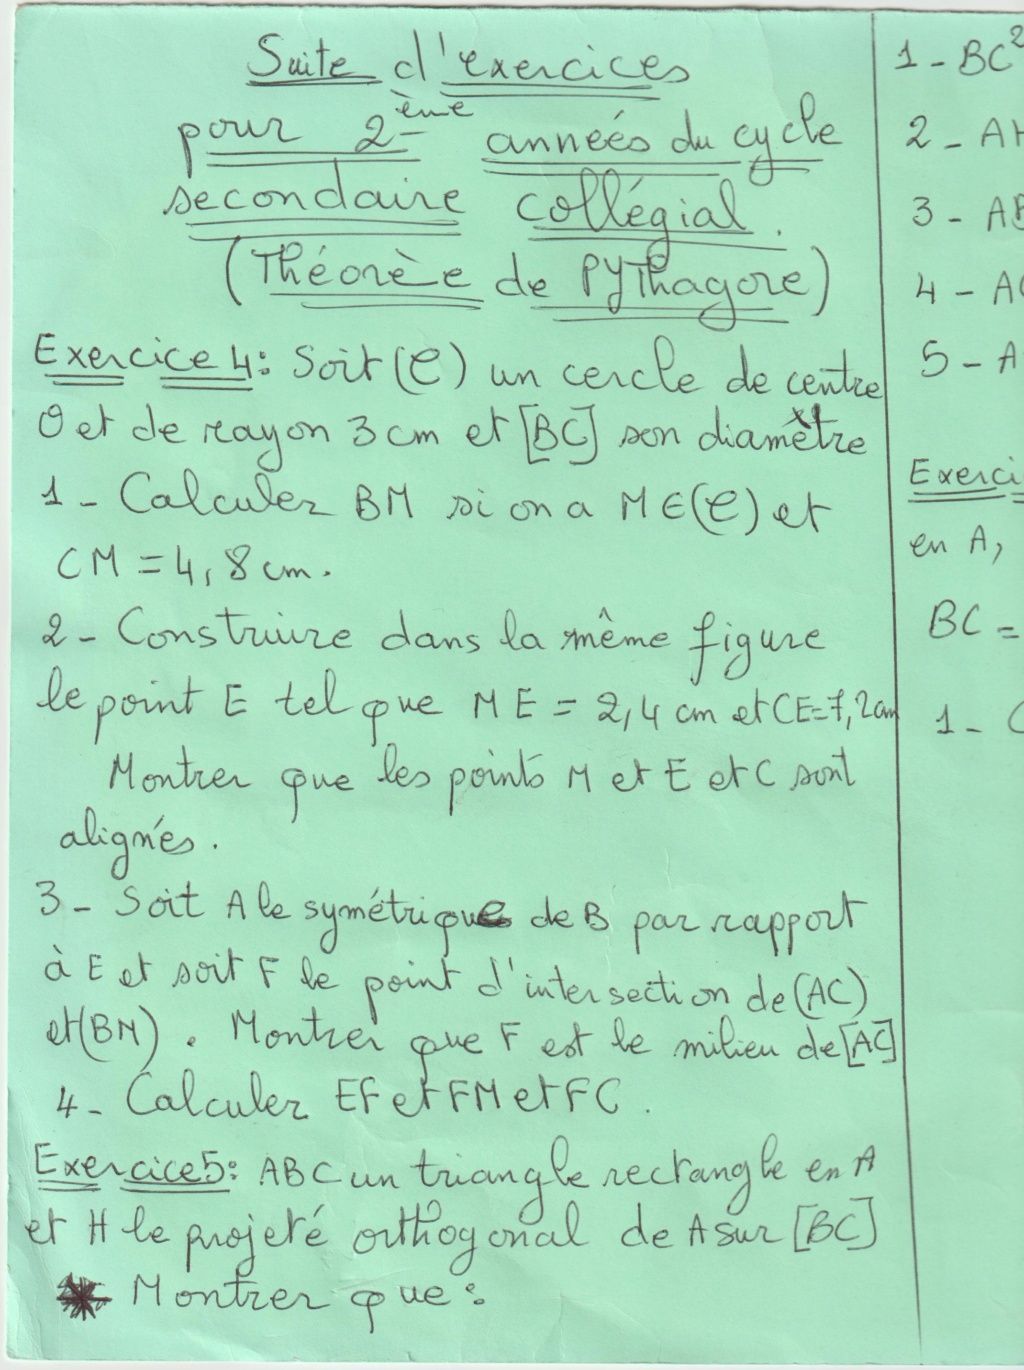 Suite d'exercices
pour 2ème années du cycle
secondaire collégial.
(Théorèe de PYThagore)
Exercice 4: Soit (C) un cercle de centre
O et de rayon 3 cm et [BC] son diamètre
1 - Calculer BM si on a M ∈ (C) et
CM = 4,8 cm.
2 - Construire dans la même figure
le point E tel que ME = 2,4 cm et CE=7,2cm
Montrer que les points M et E et C sont
alignés.
3 - Soit A le symétrique de B par rapport
à E et soit F le point d'intersection de (AC)
et (BM). Montrer que F est le milieu de [AC]
4 - Calculer EF et FM et FC.
Exercice 5: ABC un triangle rectangle en A
et H le projeté orthogonal de A sur [BC]
Montrer que:
1 - BC²
2 - AH
3 - AB
4 - AC
5 - A
Exerci
en A,
BC =
1 - C